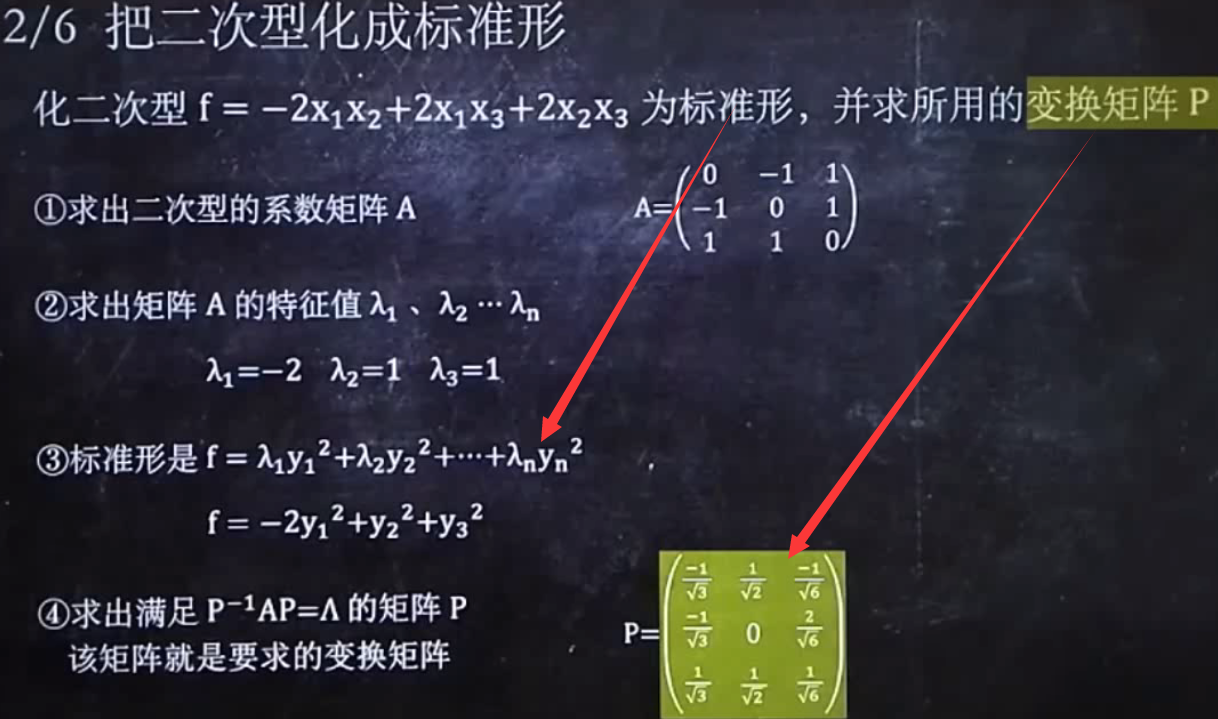 2/6 把二次型化成标准形
化二次型 f = −2x₁x₂+2x₁x₃+2x₂x₃ 为标准形，并求所用的变换矩阵 P
①求出二次型的系数矩阵 A
A=
0 −1 1
−1 0 1
1 1 0
②求出矩阵 A 的特征值 λ₁ 、λ₂ ⋯ λₙ
λ₁=−2 λ₂=1 λ₃=1
③标准形是 f = λ₁y₁²+λ₂y₂²+⋯+λₙyₙ²
f = −2y₁²+y₂²+y₃²
④求出满足 P⁻¹AP=Λ 的矩阵 P
该矩阵就是要求的变换矩阵
P=
−1/√3 1/√2 −1/√6
−1/√3 0 2/√6
1/√3 1/√2 1/√6